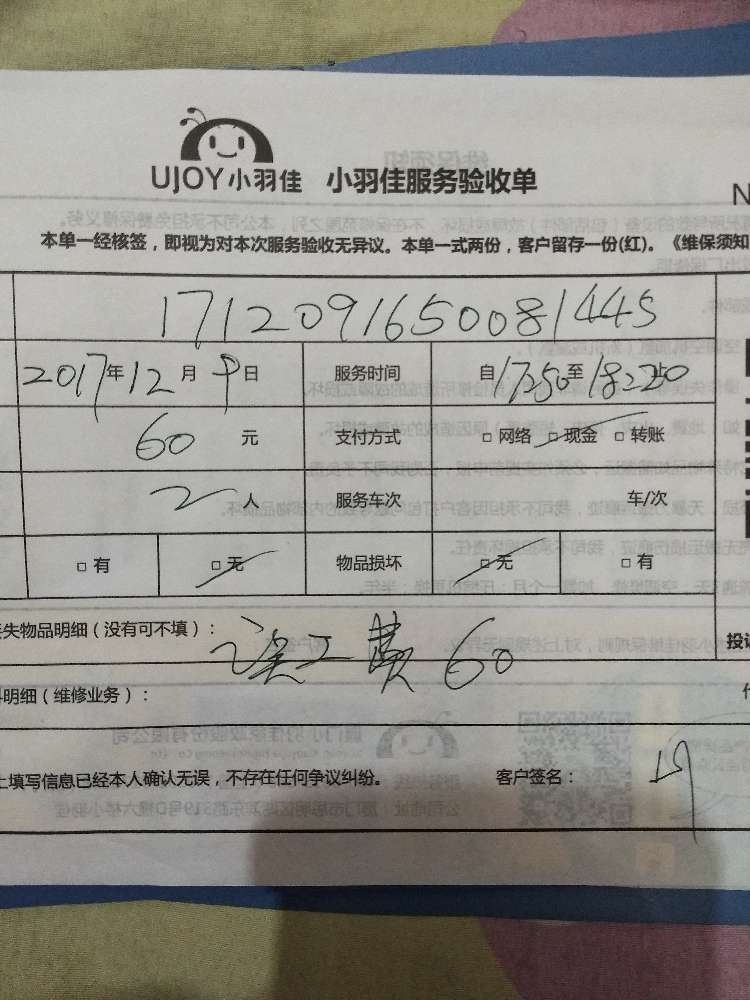 UJOY小羽佳 小羽佳服务验收单
N
本单一经核签，即视为对本次服务验收无异议。本单一式两份，客户留存一份(红)。《维保须知
1712091650081445
2017年12月9日 服务时间 自17:50至18:20
60元 支付方式 □ 网络 □ 现金 □ 转账
2人 服务车次 车/次
□ 有 □ 无 物品损坏 □ 无 □ 有
失物品明细（没有可不填）： 误工费 60
投诉
明细（维修业务）：
上填写信息已经本人确认无误，不存在任何争议纠纷。 客户签名：